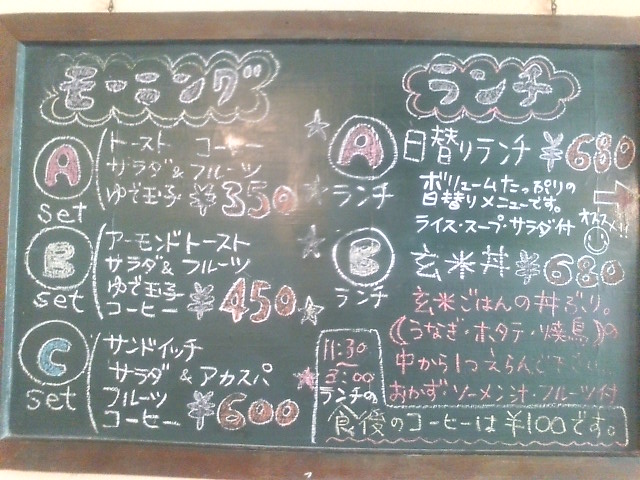 モーニング
A set
トースト コーヒー
サラダ & フルーツ
ゆで玉子 ¥350
B set
アーモンドトースト
サラダ & フルーツ
ゆで玉子
コーヒー ¥450
C set
サンドイッチ
サラダ & アカスパ
フルーツ
コーヒー ¥600
ランチ
A ランチ
日替りランチ ¥680
ボリュームたっぷりの
日替りメニューです。
ライス・スープ・サラダ付
オススメ!!
B ランチ
玄米丼 ¥680
玄米ごはんの丼ぶり。
(うなぎ・ホタテ・焼鳥)の
中から1つえらんで
おかず・ソーメン汁・フルーツ付
11:30
〜
2:00
ランチの
食後のコーヒーは¥100です。